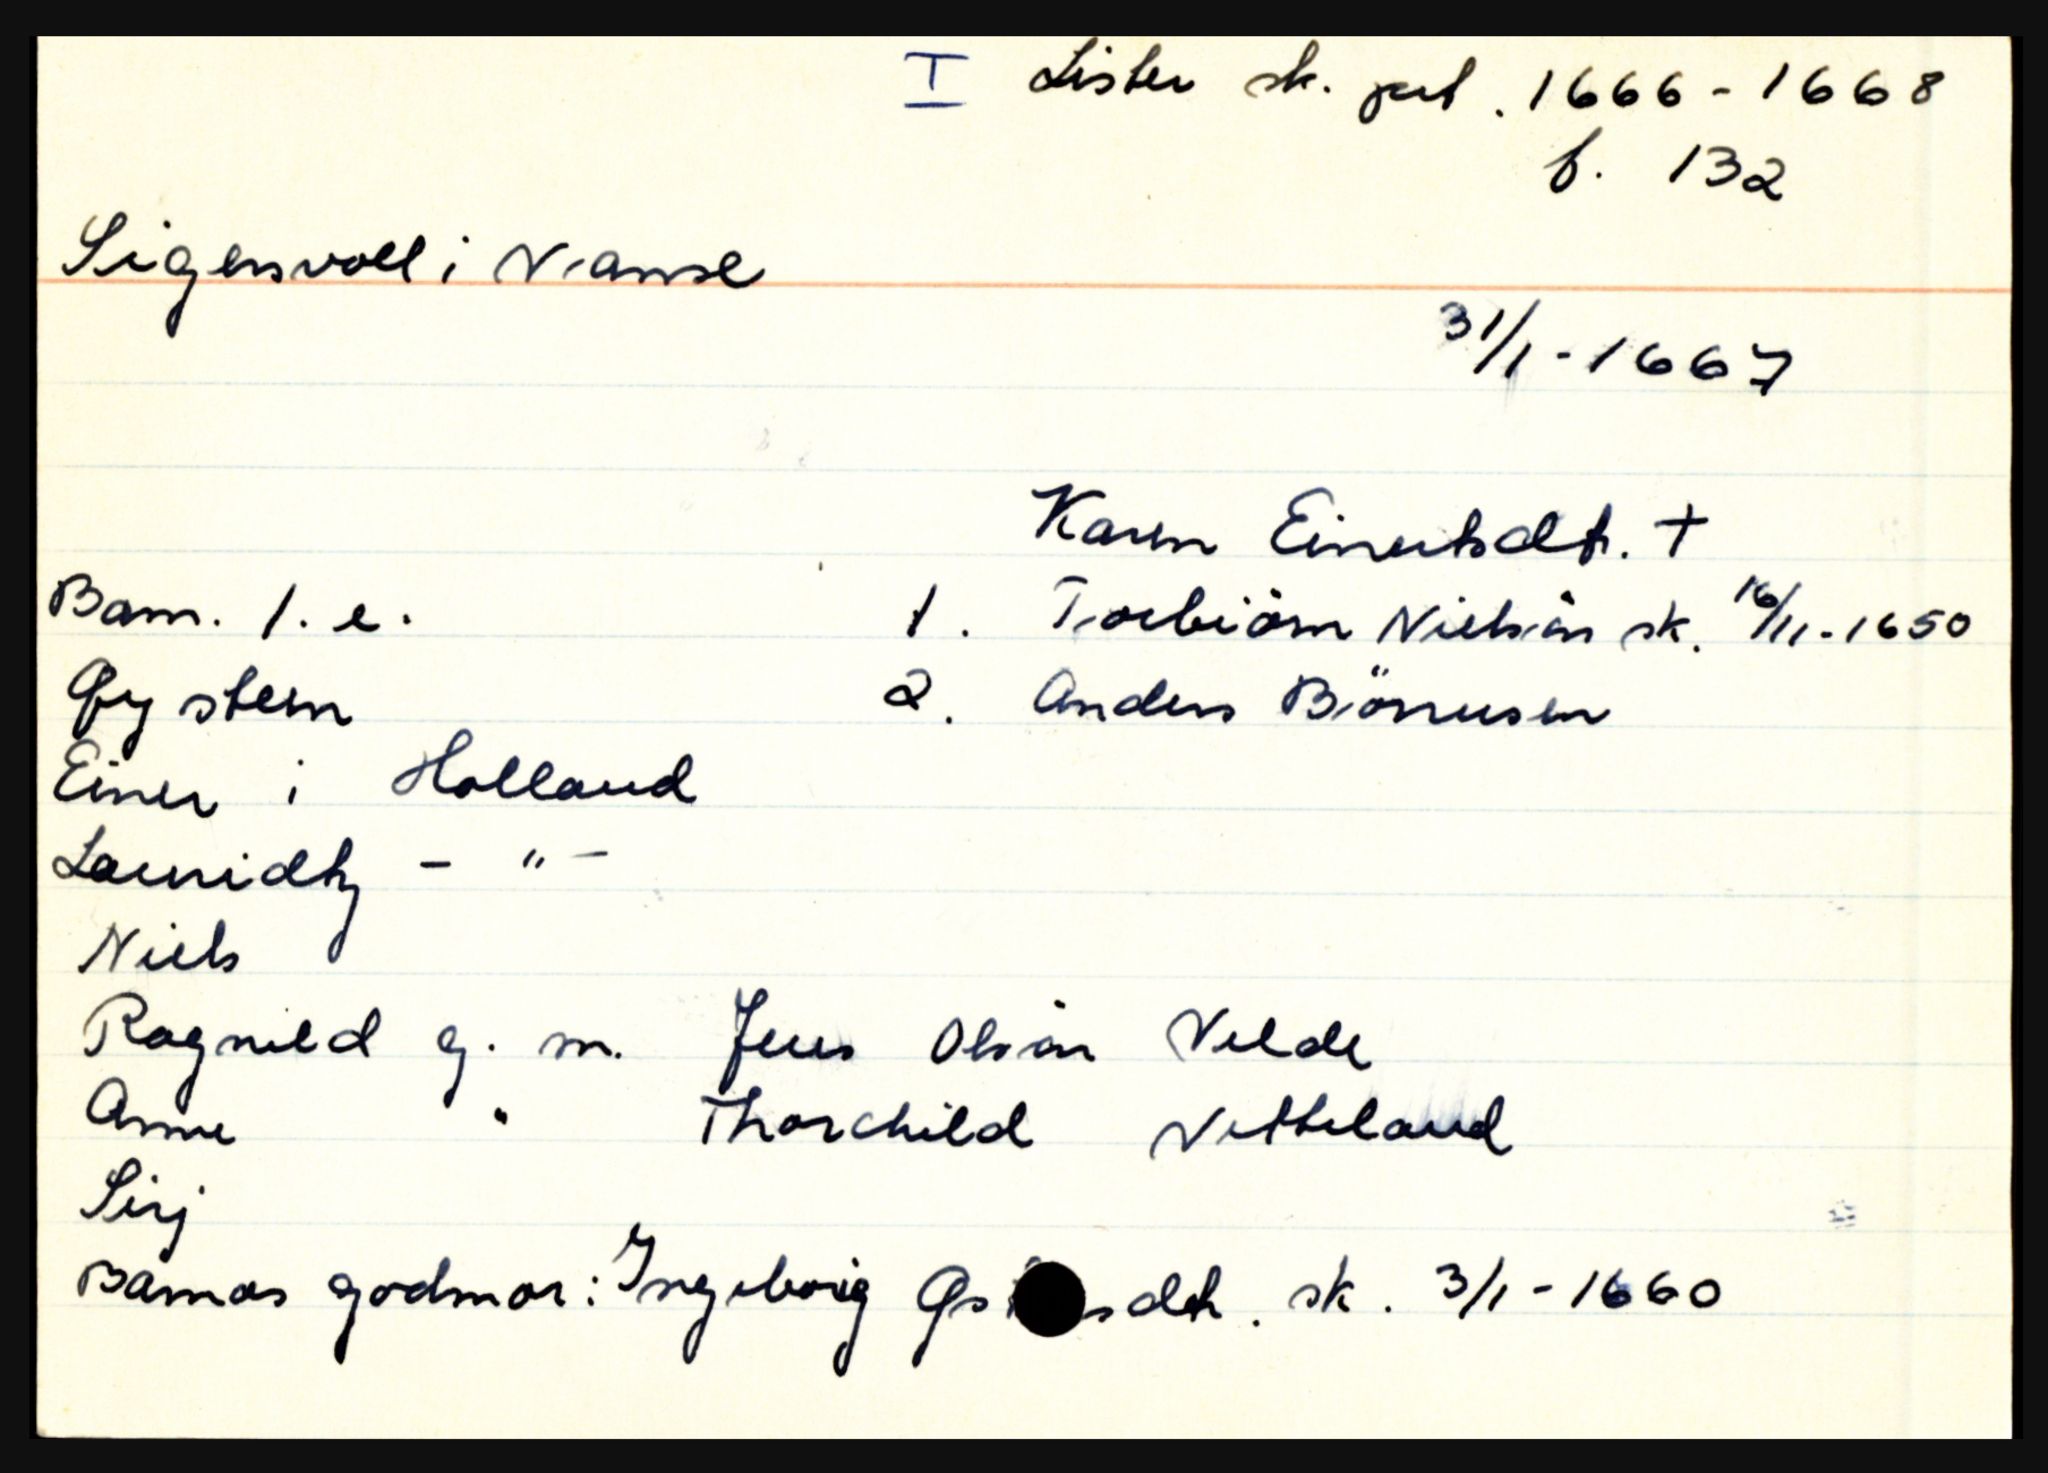 I Lister sk. prot. 1666-1668
f. 132
Sigersvoll i Vanse
31/1-1667
Karen Einertsdtr. +
Barn. 1. e. 1. Torbiörn Nielsön sk. 16/11-1650
Gystein 2. Anders Biörnusen
Einer i Holland
Lauridtz - " -
Niels
Ragnild g. m. Jens Olsön Velde
Anne " Thorchild Vetteland
Sirj
Barnas godmor: Ingeborig sk. 3/1-1660